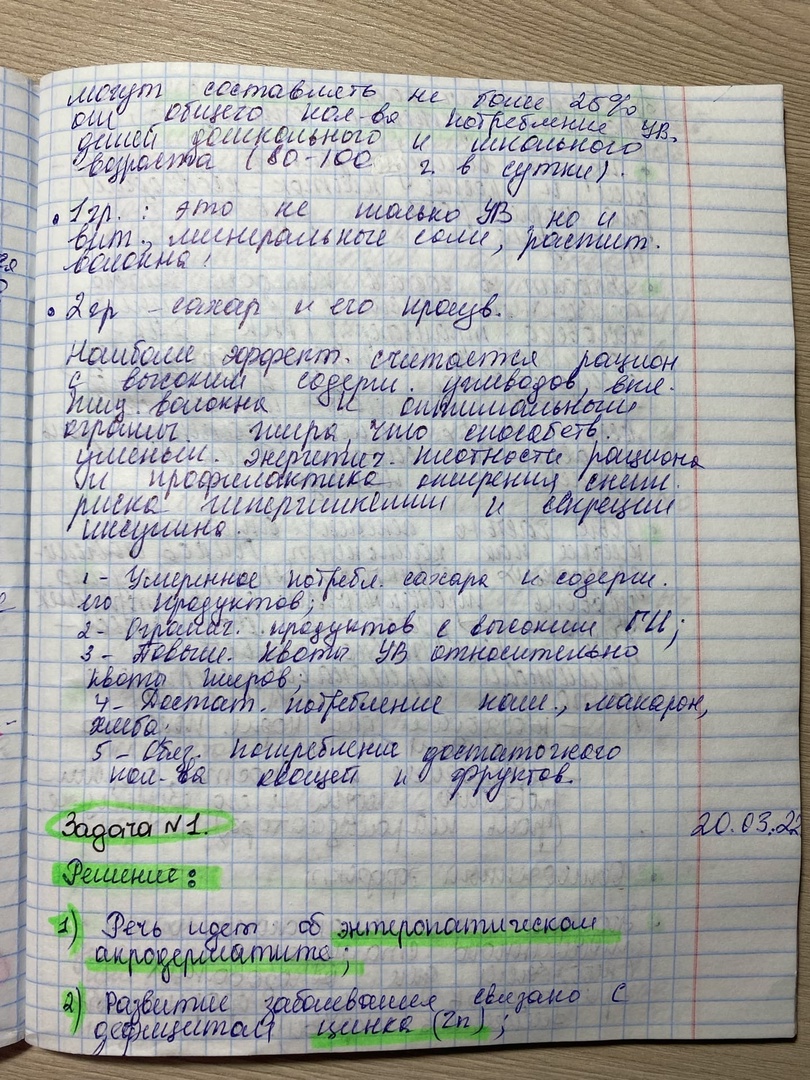 могут составлять не более 25%
от общего кол-ва потребление УВ.
детей дошкольного и школьного
возраста (80-100 г. в сутки).
• 1гр. : это не только УВ, но и
вит., минеральные соли, растит.
волокна!
• 2гр – сахар и его произв.
Наиболее эффект. считается рацион
с высоким содерж. углеводов, вкл.
пищ. волокна и оптимальным
огранич. жира, что способств.
уменьш. энергетич. плотности рациона
и профилактика ожирения сниж.
риска гипергликемии и секреции
инсулина.
1 – Умеренное потребл. сахара и содерж.
его продуктов;
2 – Огранич. продуктов с высоким ГИ;
3 – Повыш. квоты УВ относительно
квоты жиров;
4 – Достат. потребление каш., макарон,
хлеба;
5 – Обяз. потребление достаточного
кол-ва овощей и фруктов.
Задача №1.
20.03.22
Решение:
1) Речь идет об энтеропатическом
акродерматите;
2) Развитие заболевания связано с
дефицитом цинка (Zn);